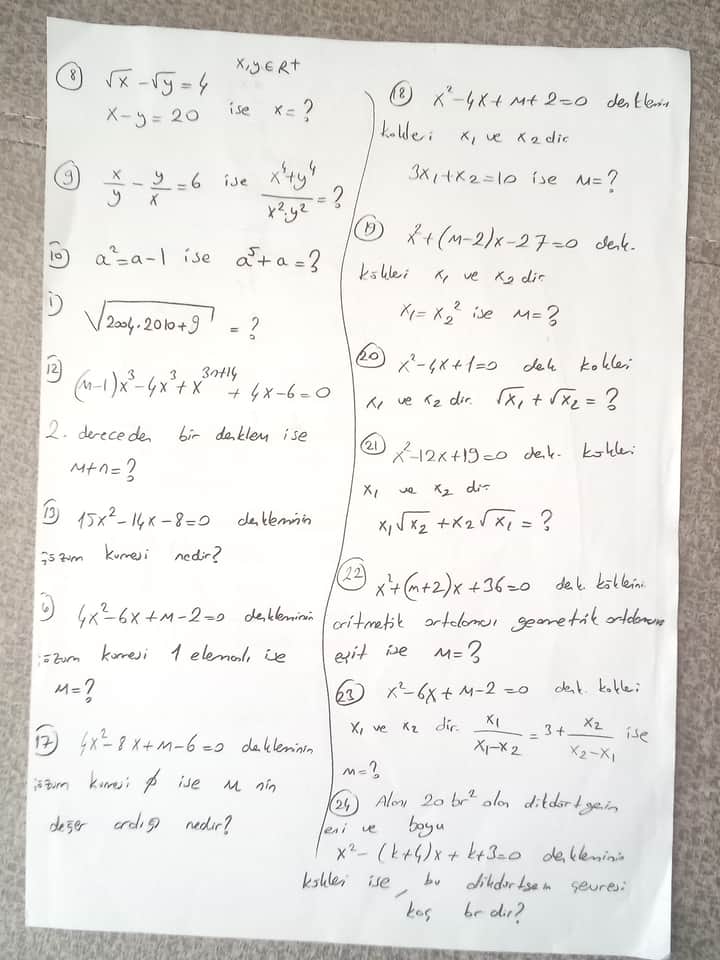 8 √x - √y = 4 x,y ∈ R+
x - y = 20 ise x = ?
9 x/y - y/x = 6 ise (x⁴+y⁴)/(x²·y²) = ?
10 a² = a-1 ise a⁵+a = ?
1) √(2004·2010+9) = ?
12 (m-1)x³ - 4x³ + x³ⁿ⁺¹⁴ + 4x - 6 = 0
2. dereceden bir denklem ise
m+n = ?
13 15x² - 14x - 8 = 0 denkleminin
çözüm kümesi nedir?
6) 4x² - 6x + m - 2 = 0 denkleminin
çözüm kümesi 1 elemanlı ise
m = ?
17 4x² - 8x + m - 6 = 0 denkleminin
çözüm kümesi ∅ ise m nin
değer aralığı nedir?
18 x² - 4x + m + 2 = 0 denklemin
kökleri x₁ ve x₂ dir
3x₁ + x₂ = 10 ise m = ?
19 x² + (m-2)x - 27 = 0 denk.
kökleri x₁ ve x₂ dir
x₁ = x₂² ise m = ?
20 x² - 4x + 1 = 0 denk kökleri
x₁ ve x₂ dir. √x₁ + √x₂ = ?
21 x² - 12x + 19 = 0 denk. kökleri
x₁ ve x₂ dir
x₁√x₂ + x₂√x₁ = ?
22 x² + (m+2)x + 36 = 0 denk. köklerini
aritmetik ortalaması geometrik ortalaması
eşit ise m = ?
23 x² - 6x + m - 2 = 0 denk. kökleri
x₁ ve x₂ dir. x₁/(x₁-x₂) = 3 + x₂/(x₂-x₁) ise
m = ?
24 Alanı 20 br² olan dikdörtgenin
eni ve boyu
x² - (k+4)x + k+3 = 0 denkleminin
kökleri ise, bu dikdörtgen çevresi
kaç br dir?